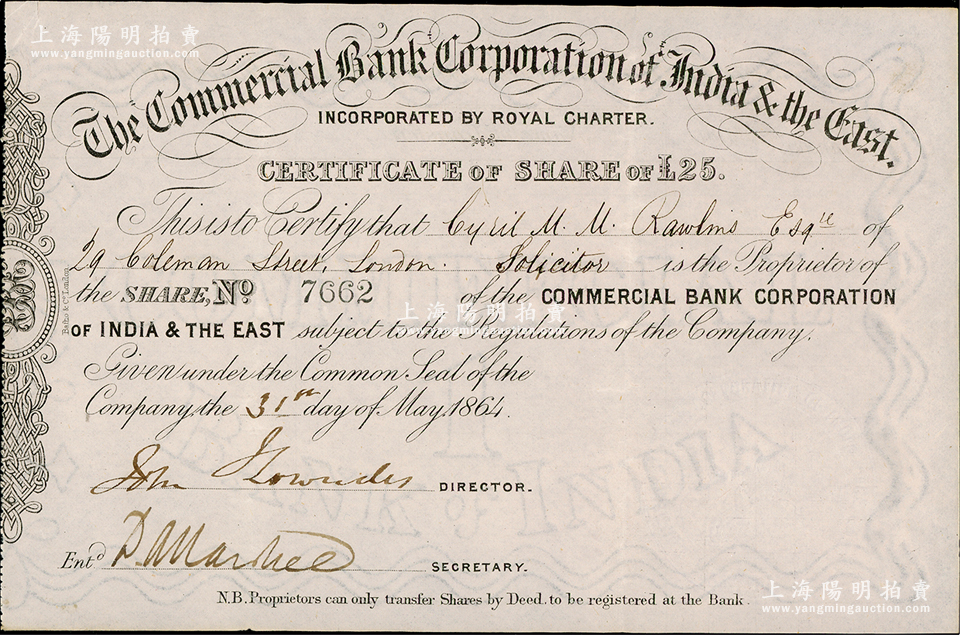 上海陽明拍賣
www.yangmingauction.com
The Commercial Bank Corporation of India & the East.
INCORPORATED BY ROYAL CHARTER.
CERTIFICATE OF SHARE OF £25.
This is to Certify that Cyril M. M. Rawlins Esqre of
29 Coleman Street, London. Solicitor is the Proprietor of
the SHARE, No 7662 of the COMMERCIAL BANK CORPORATION
上海陽明拍賣
www.yangmingauction.com
OF INDIA & THE EAST subject to the Regulations of the Company.
Given under the Common Seal of the
Company, the 31st day of May, 1864.
John DIRECTOR.
Entd SECRETARY.
N.B. Proprietors can only transfer Shares by Deed. to be registered at the Bank.
上海陽明拍賣
www.yangmingauction.com